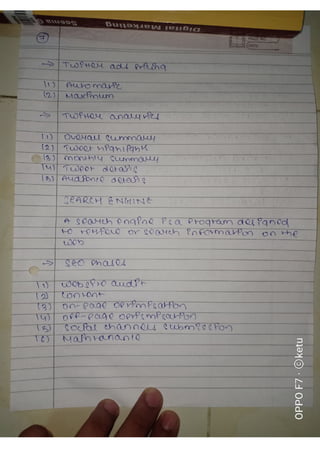 Digital Marketing
Seema G
→ Twitter ads pricing
(1) Automatic
(2) Maximum
→ Twitter analytics
(1) Overall summary
(2) Tweet highlight
(3) monthly summary
(4) Tweet details
(5) Audience details
SEARCH ENGINE
A search engine is a program designed
to retrieve or search information on the
web
→ SEO Phases
(1) website audit
(2) Content
(3) on-page optimisation
(4) off-page optimisation
(5) Social channels submission
(6) Maintenance
OPPO F7 · ©ketu